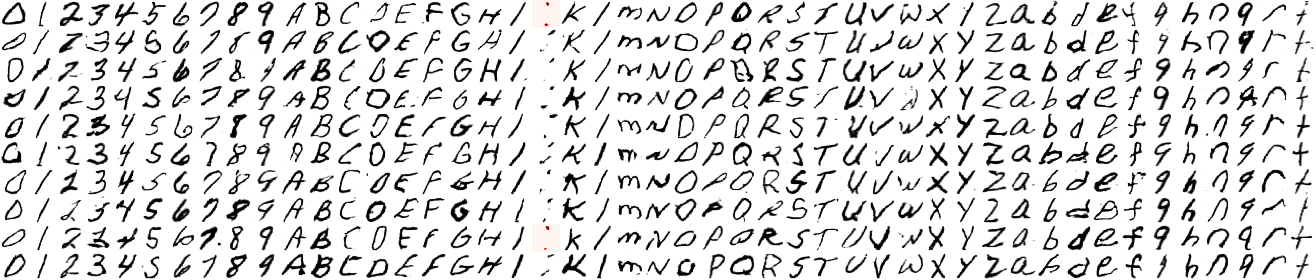 0 1 2 3 4 5 6 7 8 9 A B C D E F G H I K l m N O P Q R S T U V W X Y Z a b d e f g h n q r t
0 1 2 3 4 5 6 7 8 9 A B C D E F G H I K l m N O P Q R S T U V W X Y Z a b d e f g h n q r t
0 1 2 3 4 5 6 7 8 9 A B C D E F G H I K l m N O P Q R S T U V W X Y Z a b d e f g h n q r t
0 1 2 3 4 5 6 7 8 9 A B C D E F G H I K l m N O P Q R S T U V W X Y Z a b d e f g h n q r t
0 1 2 3 4 5 6 7 8 9 A B C D E F G H I K l m N O P Q R S T U V W X Y Z a b d e f g h n q r t
0 1 2 3 4 5 6 7 8 9 A B C D E F G H I K l m N O P Q R S T U V W X Y Z a b d e f g h n q r t
0 1 2 3 4 5 6 7 8 9 A B C D E F G H I K l m N O P Q R S T U V W X Y Z a b d e f g h n q r t
0 1 2 3 4 5 6 7 8 9 A B C D E F G H I K l m N O P Q R S T U V W X Y Z a b d e f g h n q r t
0 1 2 3 4 5 6 7 8 9 A B C D E F G H I K l m N O P Q R S T U V W X Y Z a b d e f g h n q r t
0 1 2 3 4 5 6 7 8 9 A B C D E F G H I K l m N O P Q R S T U V W X Y Z a b d e f g h n q r t